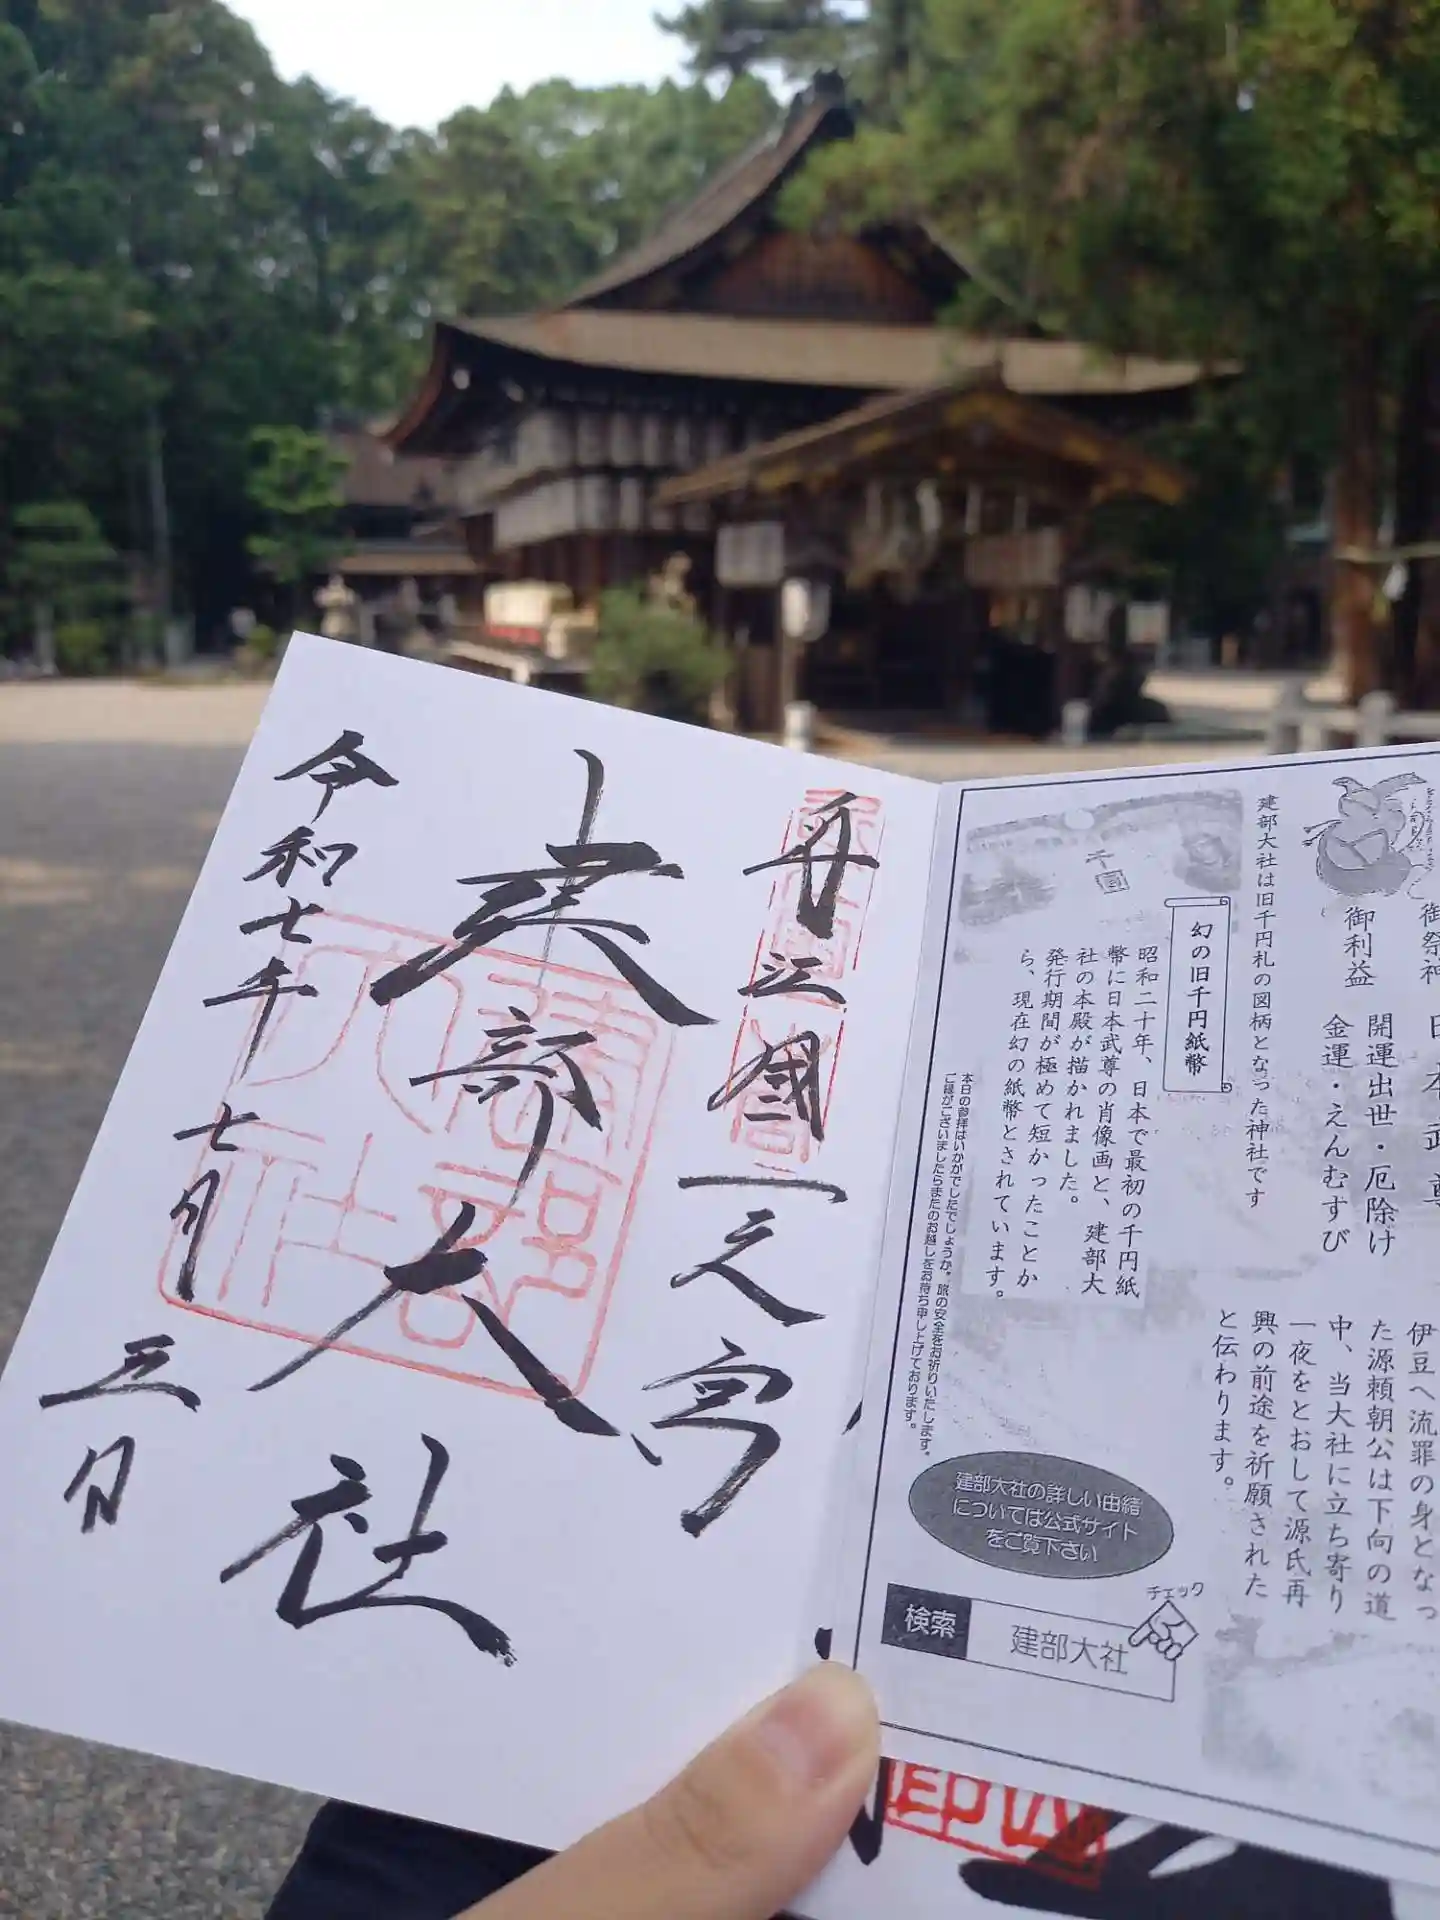 舟江國一之宮
建部大社
令和七年七月三日
御祭神 日本武尊
御利益
開運出世・厄除け
金運・えんむすび
伊豆へ流罪の身となっ
た源頼朝公は下向の道
中、当大社に立ち寄り
一夜をとおして源氏再
興の前途を祈願された
と伝わります。
建部大社は旧千円札の図柄となった神社です
幻の旧千円紙幣
千圓
昭和二十年、日本で最初の千円紙
幣に日本武尊の肖像画と、建部大
社の本殿が描かれました。
発行期間が極めて短かったことか
ら、現在幻の紙幣とされています。
本日の参拝はいかがでしたでしょうか。旅の安全をお祈りいたします。
ご縁がございましたらまたのお越しをお待ち申し上げております。
建部大社の詳しい由緒
については公式サイト
をご覧下さい
チェック
検索 建部大社